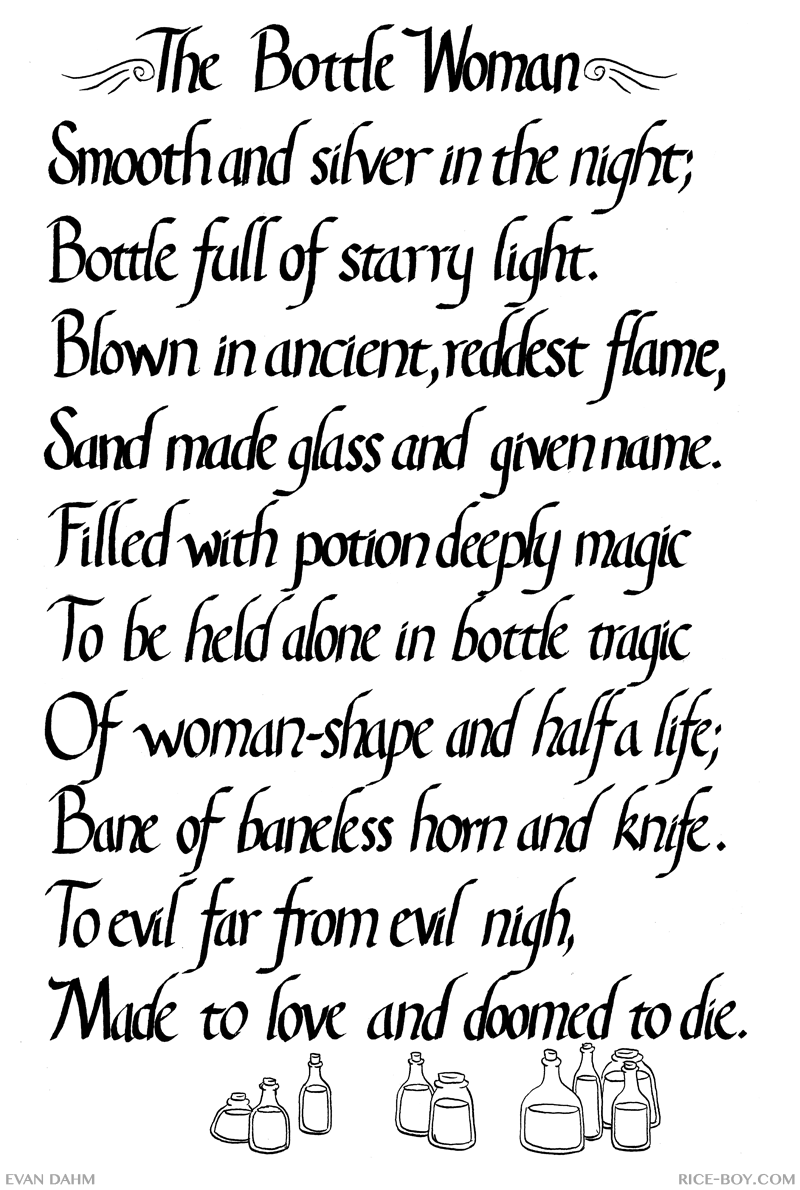 The Bottle Woman
Smooth and silver in the night;
Bottle full of starry light.
Blown in ancient, reddest flame,
Sand made glass and given name.
Filled with potion deeply magic
To be held alone in bottle tragic
Of woman-shape and half a life;
Bane of baneless horn and knife.
To evil far from evil nigh,
Made to love and doomed to die.
EVAN DAHM
RICE-BOY.COM